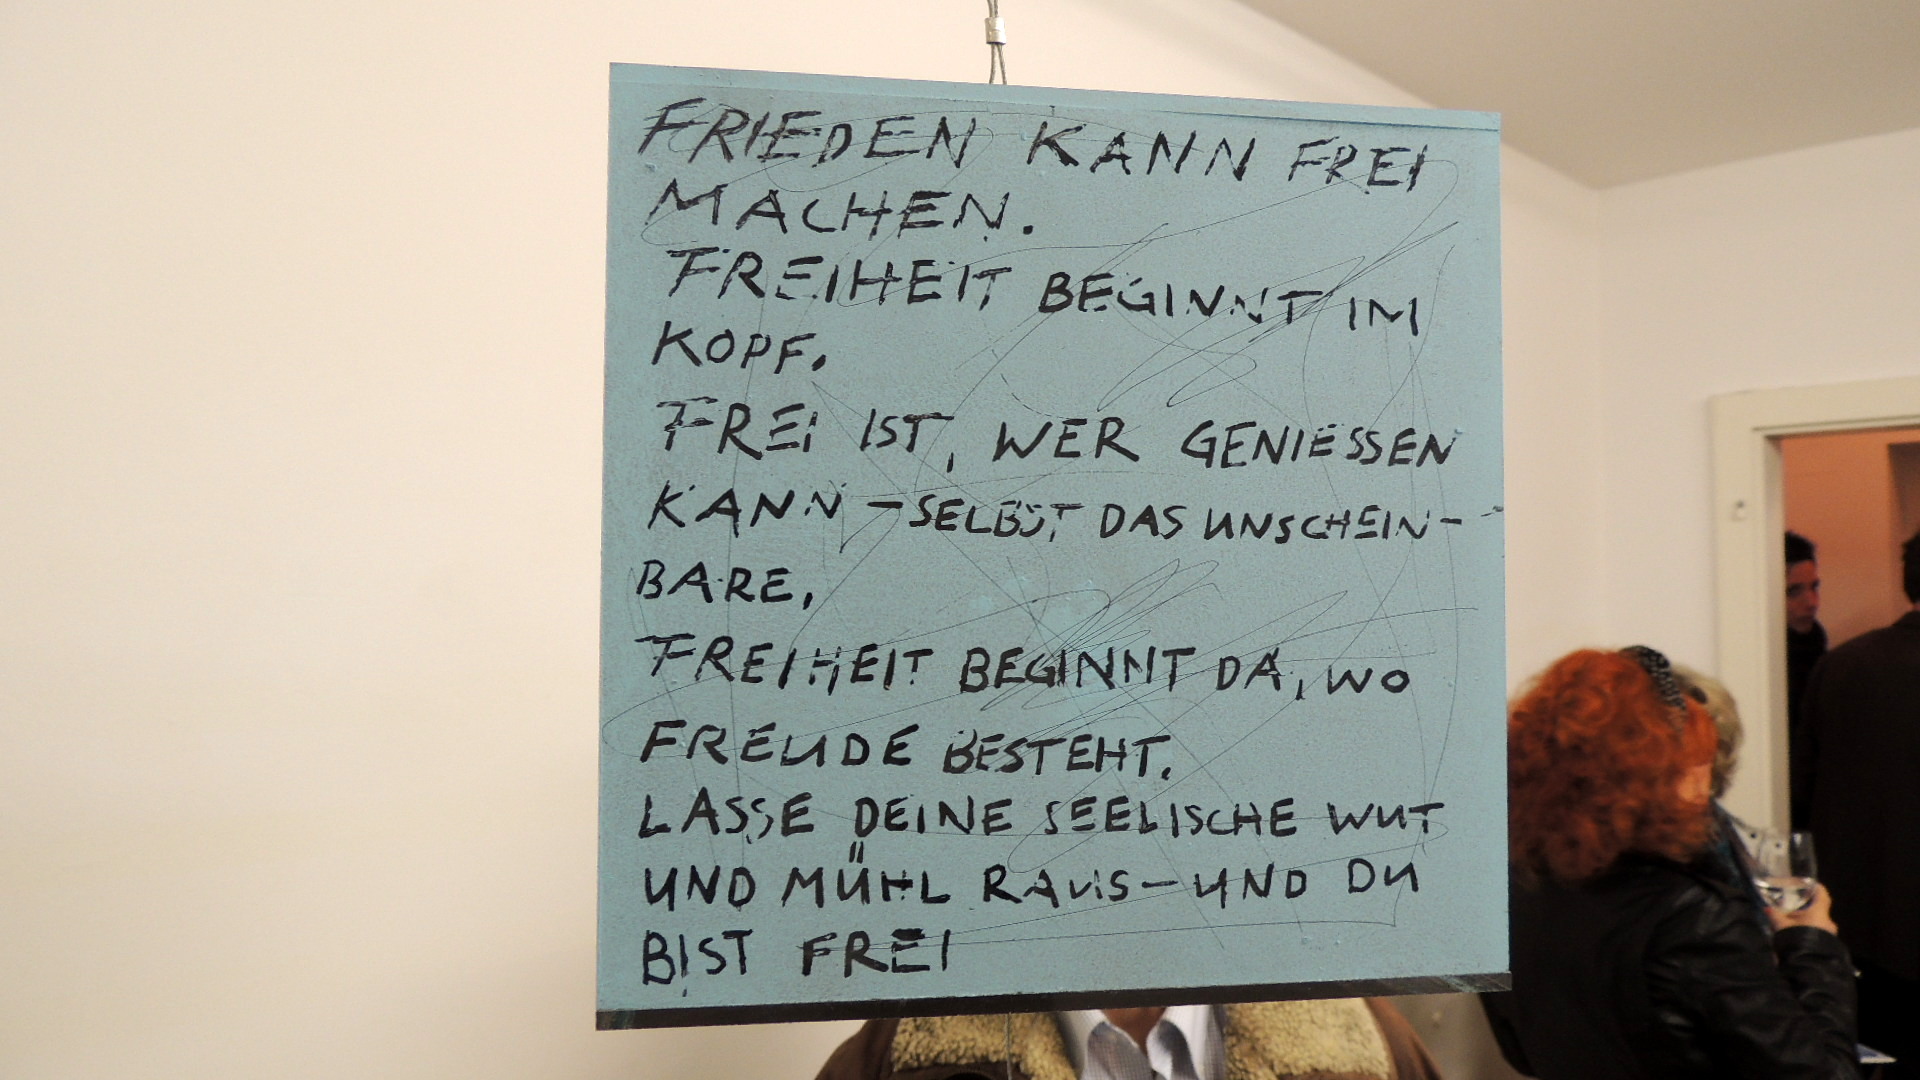 FRIEDEN KANN FREI
MACHEN.
FREIHEIT BEGINNT IM
KOPF.
FREI IST, WER GENIESSEN
KANN – SELBST DAS UNSCHEIN-
BARE,
FREIHEIT BEGINNT DA, WO
FREUDE BESTEHT.
LASSE DEINE SEELISCHE WUT
UND MÜHL RAUS – UND DU
BIST FREI